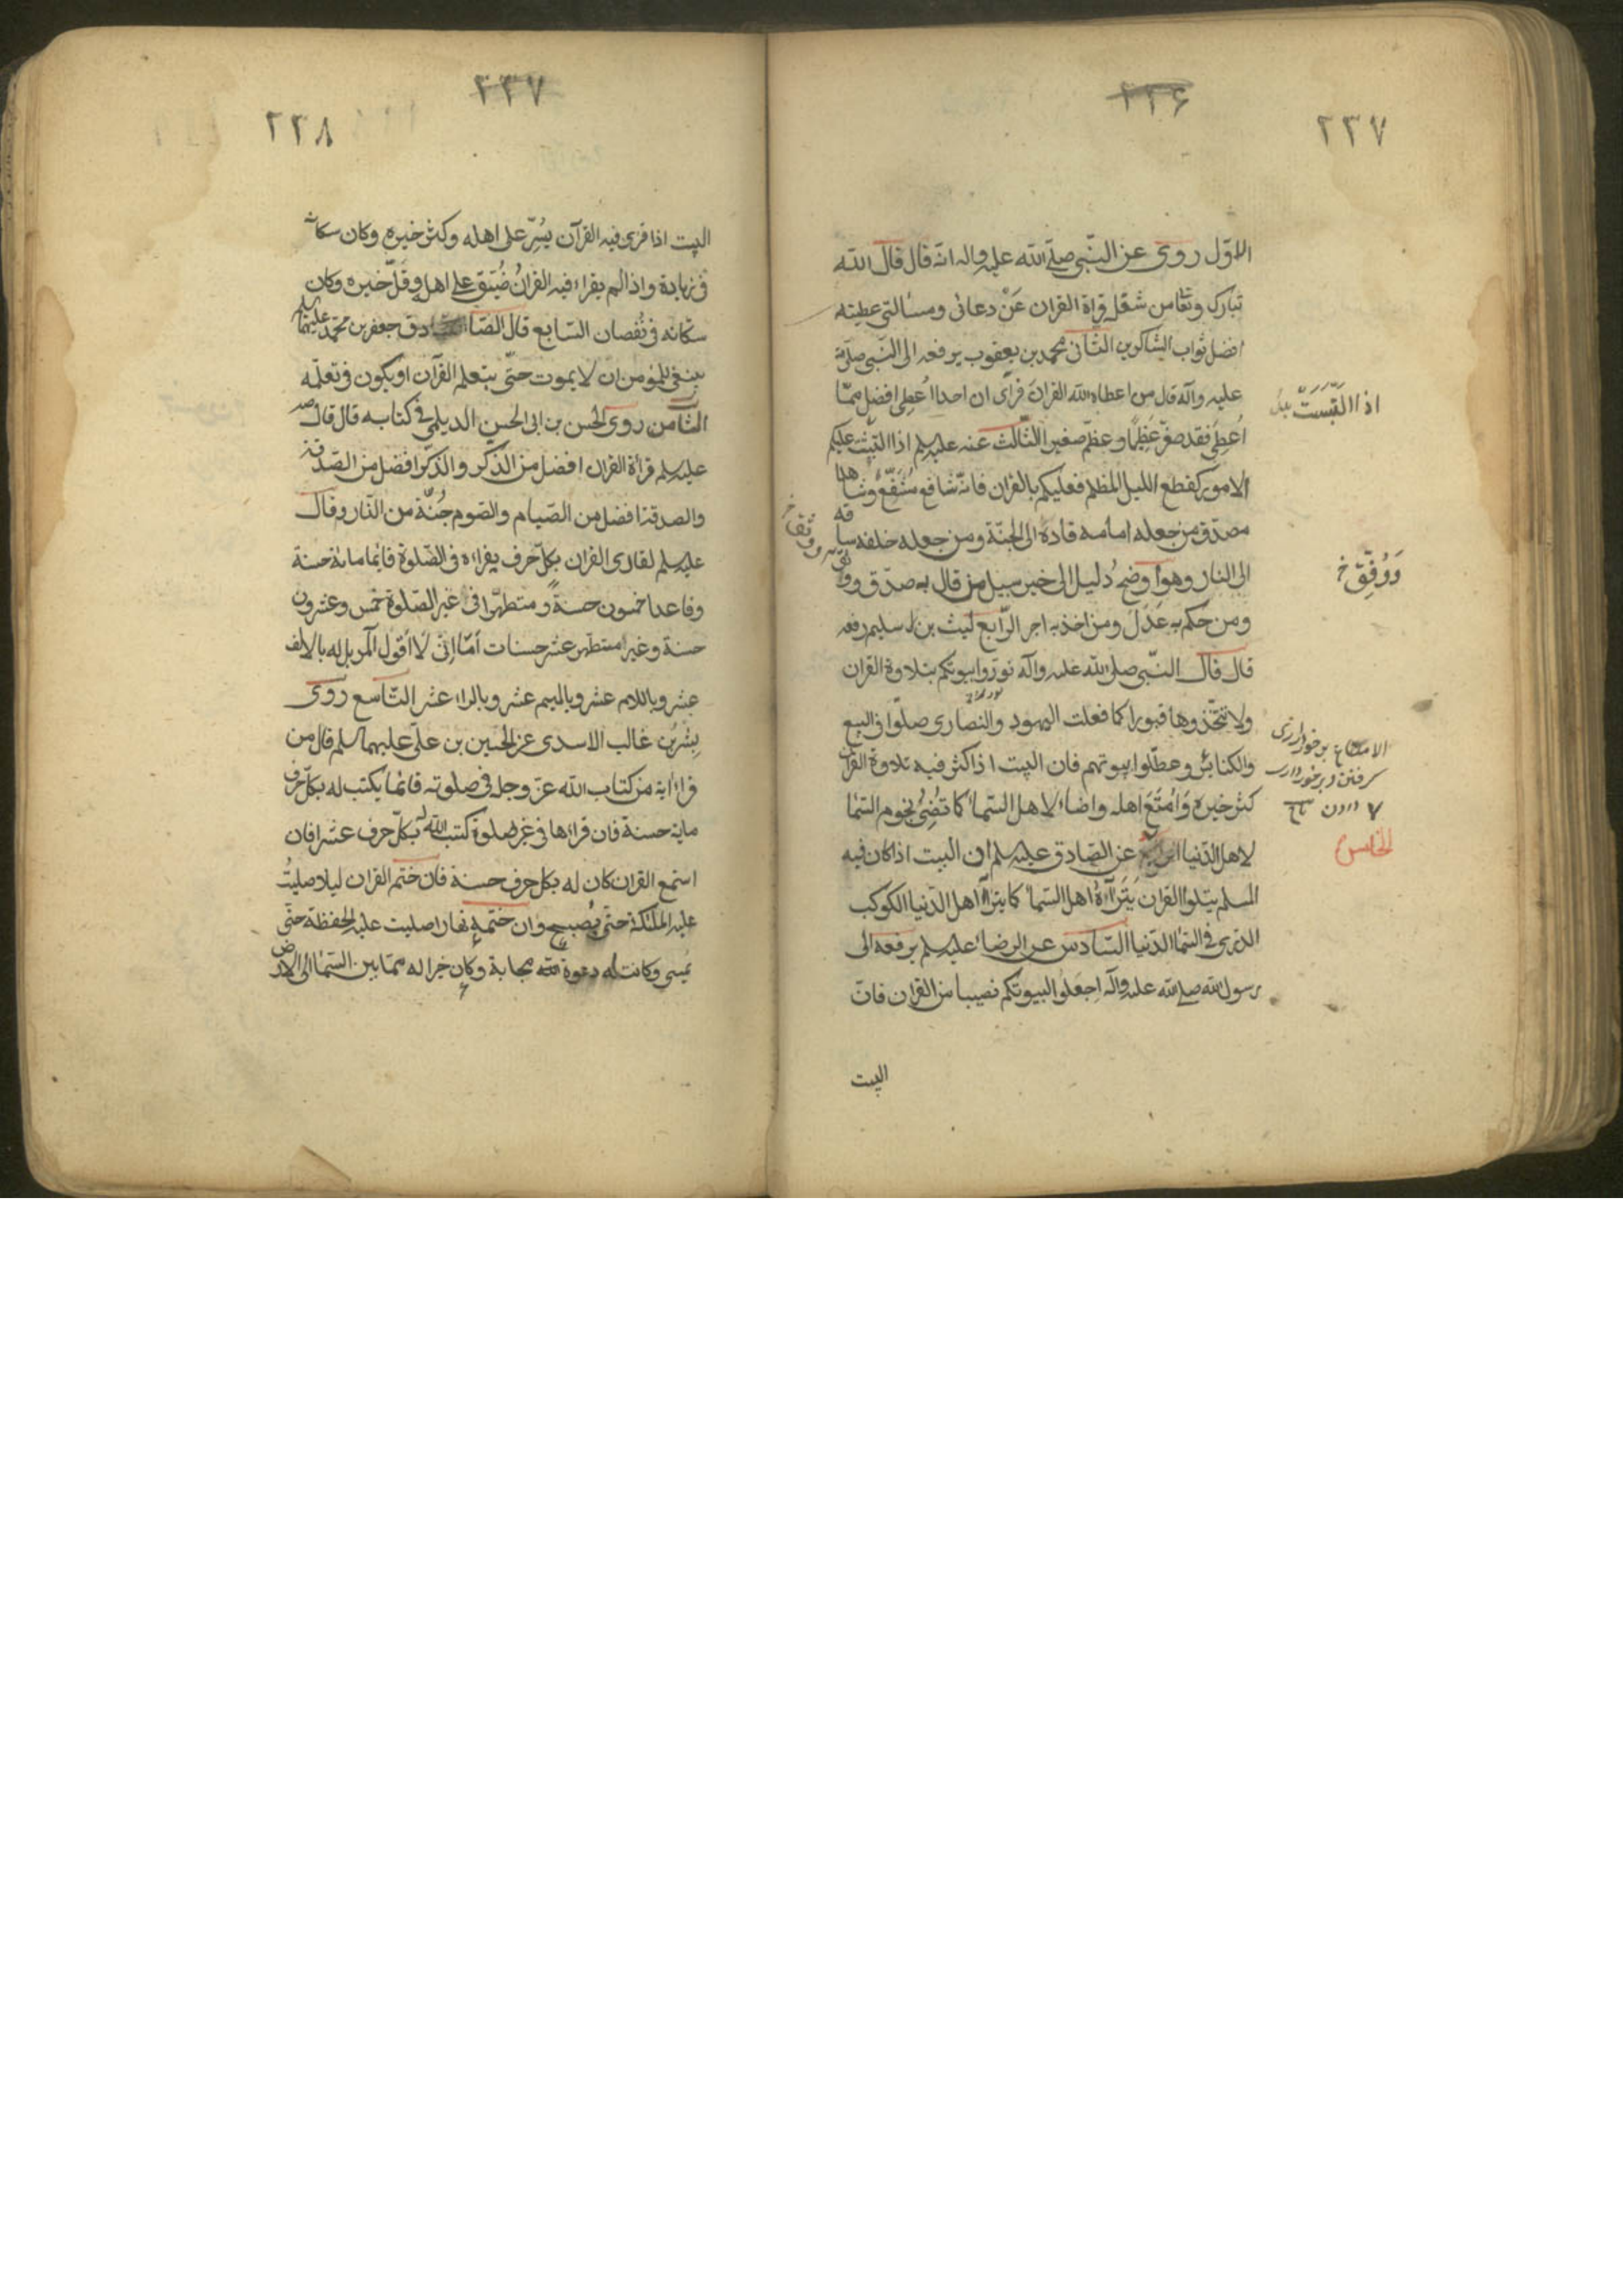 ٢٣٦
٢٣٧
الاوّل روى عن النّبى صلّى الله عليه واله انه قال قال الله
تبارك وتعا من شغله قراة القران عَنْ دعائى ومسألتى عطيته
افضل ثواب الشاكرين الثانى محمد بن يعقوب يرفعه الى النّبى صلى الله
عليه وآله قال من اعطاه الله القرانَ فراى ان احدا اُعطِى افضل ممّا
اُعطِىَ فقد صغّر عَظِيمًا وعظّم صغيرا الثّالث عنه عليه سلم اذا التبست عليكم
الامور كقطع الليل المظلم فعليكم بالقران فانّه شافع مُشَفَّعٌ وشاهد
مصدّق من جعله امامه قادَهُ الى الجنّة ومن جعله خلفه ساقه
الى النار وهو اَوضحُ دليل الى خير سبيل من قال به صدّق ووفق
ومن حكم به عَدَلَ ومن اخذ به اجر الرّابع ليث بن سليم رفعه
قال قال النّبى صلى الله عليه وآله نوّروا بيوتكم بتلاوة القران
ولا تتّخذوها قبورا كما فعلت اليهود والنصارى صلّوا فى البيع
والكنائس وعطّلوا بيوتهم فان البيت اذا كثر فيه تلاوة القران
كثر خيره وَاُمْتِعَ اهله واضاء لاهل السّماء كما تُضِئُ نجوم السّما
لاهل الدّنيا عن الصّادق عليه سلم ان البيت اذا كان فيه
المسلم يتلوا القران يَتَرَاآهُ اهل السّماء كما يتراآ اهل الدّنيا الكوكب
الدّرى فى السّما الدّنيا السّادس عن الرضاء عليه سلم يرفعه الى
رسول الله صلى الله عليه وآله اجعلوا لبيوتكم نصيبا من القران فانّ
البيت
اذا التبَسَتْ
وَوُفِّقَ خ
الامتاع برخوردارى
كرفتن وبرخوردارى
الخامس
٢٣٧
٢٣٨
البيت اذا قرى فيه القرآن يُسِّرَ على اهله وكثر خيره وكان سكانه
فى زيادة واذا لم يقراء فيه القرانُ ضُيّقَ على اهله وقَلَّ خيره وكان
سكّانه فى نُقصان السّابع قال الصّادق جعفر بن محمّد عليهما سلم
ينبغى للمؤمن ان لا يموت حتّى يتعلم القرآن او يكون فى تعلّمه
الثّامن روى الحسن بن ابى الحسن الديلمى فى كتابه قال قال
عليه سلم قرأة القران افضل من الذكر والذّكر افضل من الصّدقة
والصدقة افضل من الصّيام والصّوم جُنّة من النّار وقال
عليه سلم لقارى القران بكلّ حرف يقراءه فى الصّلوة قائما ماية حسنة
وقاعدا خمسون حسنةً ومتطهّرا فى غير الصّلوة خمس وعشرون
حسنة وغير متطهّر عشر حسنات اَمَا اِنّى لا اقول آلمر بل له بالالف
عشر وباللام عشر وبالميم عشر وبالراء عشر التّاسع روى
بِشْرُ بن غالب الاسدى عن الحسين بن علىّ عليهما سلم قال من
قراء اية من كتاب الله عزّ وجل فى صلوته قائما يكتب له بكلّ حرف
ماية حسنة فان قراءها فى غير صلوة كتب الله له بكلّ حرف عشرا فان
استمع القران كان له بكلّ حرف حسنة فان ختم القران ليلا صلّيتُ
عليه الملئكة حتى يُصبح وان ختمه نهارا صليت عليه الحفظة حتى
يُمسى وكانت له دعوة مجابة وكان خيرا له ممّا بين السّماء الى الارض